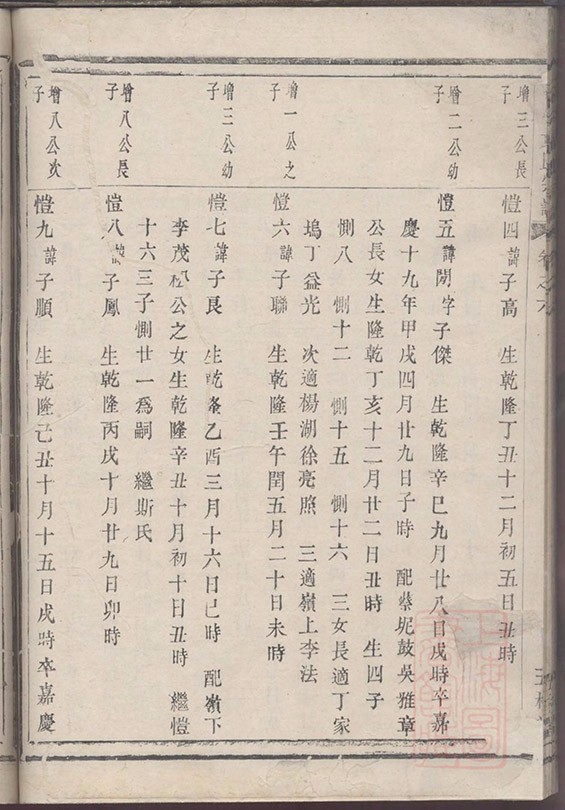 增三公長子
愷四諱子高 生乾隆丁丑十二月初五日丑時
增二公幼子
愷五諱閉字子傑 生乾隆辛巳九月廿八日戌時卒嘉
慶十九年甲戌四月廿九日子時 配蔡坭鼓吳雅章
公長女生隆乾丁亥十二月廿二日丑時 生四子
惻八 惻十二 惻十五 惻十六 三女長適丁家
塢丁益光 次適楊湖徐亮照 三適嶺上李法
增一公之子
愷六諱子聯 生乾隆壬午閏五月二十日未時
增三公幼子
愷七諱子良 生乾隆乙酉三月十六日巳時 配嶺下
李茂松公之女生乾隆辛丑十月初十日丑時 繼愷
十六三子惻廿一爲嗣 繼斯氏
增八公長子
愷八諱子鳳 生乾隆丙戌十月廿九日卯時
增八公次子
愷九諱子順 生乾隆己丑十月十五日戌時卒嘉慶